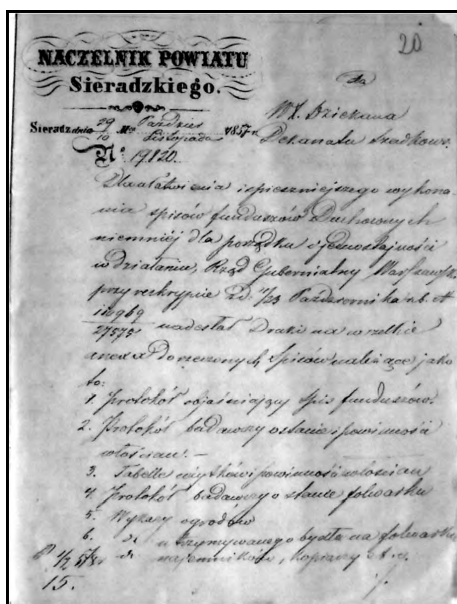 20
NACZELNIK POWIATU
Sieradzkiego.
Do
WX. Dziekana
Dekanatu Szadkows.
Sieradz dnia 29/10 Mca Paździer/Listopada 1857 r
No 19120.
Dla ułatwienia i spieszniejszego wykona-
nia spisów funduszów Duchownych
niemniéj dla porządku i jednostajności
w działaniu, Rząd Gubernialny Warszawski
przy reskrypcie z d. 11/23 Października r. b. N
110969/27575 nadesłał Druki na wszelkie
anexa do rzeczonych spisów należące jako
to:
1. Protokół objaśniający spis funduszów.
2. Protokół badawczy o stanie i powinności
włościan. —
3. Tabelle użytków i powinności włościan
4. Protokół badawczy o stanie folwarku
5. Wykazy ogrodów
6. d° utrzymywanego bydła na folwarku
d° najemników, kopczarzy
15.